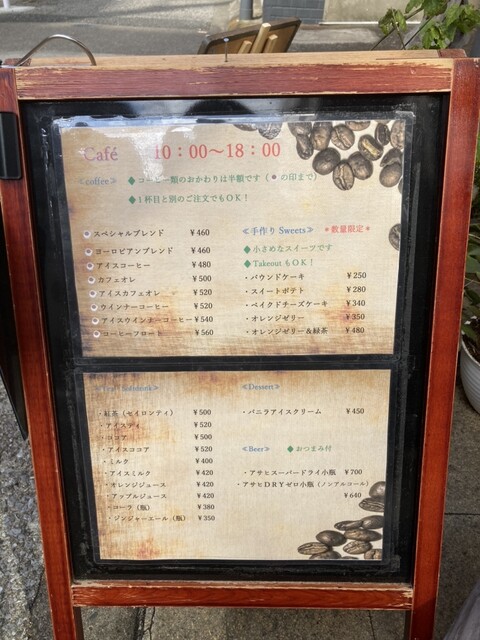 Café 10：00～18：00
≪coffee≫ ◆コーヒー類のおかわりは半額です（●の印まで）
◆1杯目と別のご注文でもOK！
スペシャルブレンド ￥460
ヨーロピアンブレンド ￥460
アイスコーヒー ￥480
カフェオレ ￥500
アイスカフェオレ ￥520
ウインナーコーヒー ￥520
アイスウインナーコーヒー ￥540
コーヒーフロート ￥560
≪手作り Sweets≫ ＊数量限定＊
◆小さめなスイーツです
◆Takeout もOK！
・パウンドケーキ ￥250
・スイートポテト ￥280
・ベイクドチーズケーキ ￥340
・オレンジゼリー ￥350
・オレンジゼリー＆緑茶 ￥480
・紅茶（セイロンティ） ￥500
・アイスティ ￥520
・ココア ￥500
・アイスココア ￥520
・ミルク ￥400
・アイスミルク ￥420
・オレンジジュース ￥420
アップルジュース ￥420
・コーラ（瓶） ￥380
・ジンジャーエール（瓶） ￥350
≪Dessert≫
・バニラアイスクリーム ￥450
≪Beer≫ ◆おつまみ付
・アサヒスーパードライ小瓶 ￥700
・アサヒＤＲＹゼロ小瓶（ノンアルコール）
￥640